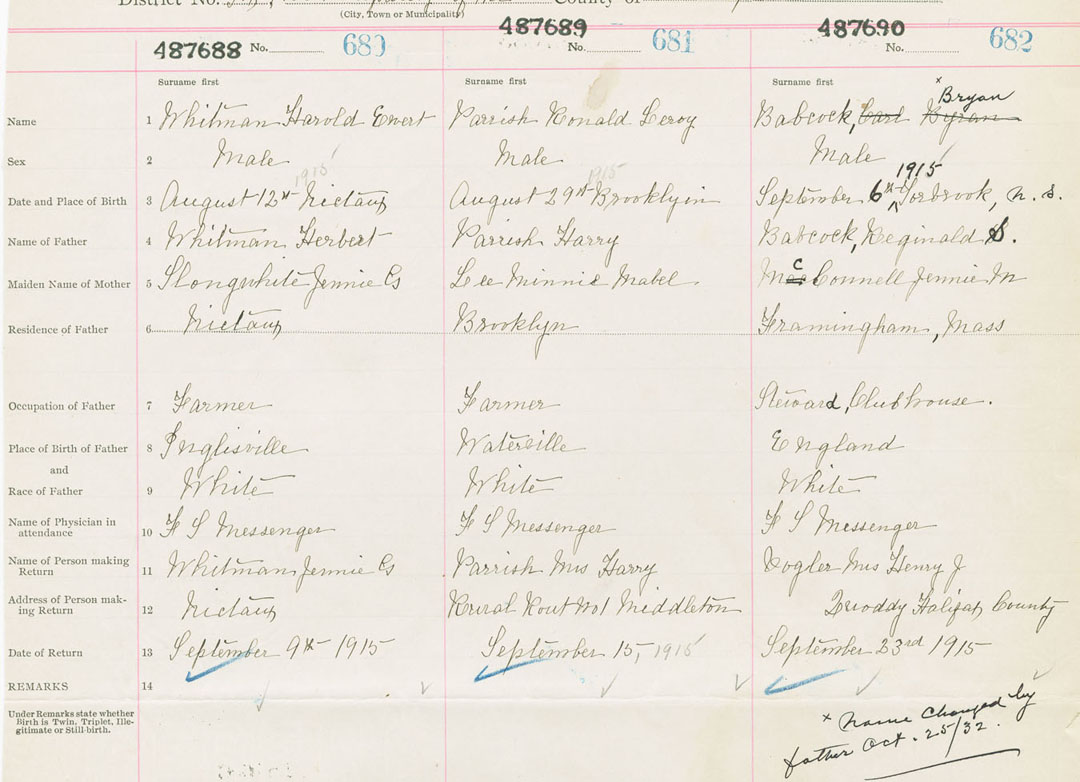 District No.
County of
(City, Town or Municipality)
487688 No. 680
487689 No. 681
487690 No. 682
Surname first Surname first Surname first
Name 1 Whitman Harold Evert Parrish Ronald Leroy Babcock, Carl Byran x Bryan
Sex 2 Male Male Male
Date and Place of Birth 3 August 12th 1915 Nictaux August 29th 1915 Brooklyin September 6th 1915 Torbrook, N. S.
Name of Father 4 Whitman Herbert Parrish Harry Babcock, Reginald S.
Maiden Name of Mother 5 Slongwhite Jennie Lee Minnie Mabel McConnell Jennie M
Residence of Father 6 Nictaux Brooklyn Framingham, Mass
Occupation of Father 7 Farmer Farmer Steward, Clubhouse.
Place of Birth of Father 8 Inglisville Waterville England
and
Race of Father 9 White White White
Name of Physician in
attendance 10 F S Messenger F S Messenger F S Messenger
Name of Person making
Return 11 Whitman Jennie Parrish Mrs Harry Vogler Mrs Henry J
Address of Person mak-
ing Return 12 Nictaux Rural Rout No 1 Middleton Quoddy Halifax County
Date of Return 13 September 9th 1915 September 15, 1915 September 23rd 1915
REMARKS 14
Under Remarks state whether
Birth is Twin, Triplet, Ille-
gitimate or Still-birth.
x Name Changed by
father Oct. 25/32.